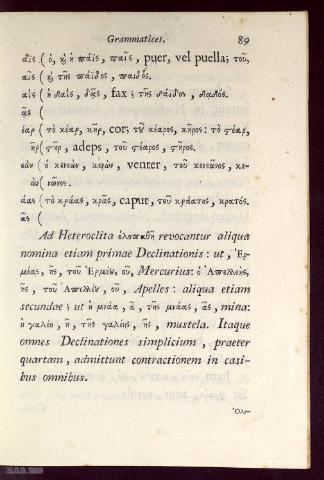 Grammatices. 89
άϊς ( ὁ, καὶ ἡ πάϊς, παῖς, puer, vel puella; τοῦ,
αῖς ( καὶ τῆς πάϊδος, παιδός.
αῒς ( ἡ δαῒς, δᾷς, fax; τῆς δάϊδος, δᾳδός.
ᾷς (
έαρ ( τὸ κέαρ, κῆρ, cor; τοῦ κέαρος, κῆρος: τὸ στέαρ,
ῆρ ( στῆρ, adeps, τοῦ στέαρος, στῆρος.
εὼν ( ὁ κενεὼν, κενὼν, venter, τοῦ κενεῶνος, κε-
ὼν ( νῶνος.
άας ( τὸ κράας, κρᾶς, caput, τοῦ κράατος, κρατός.
ᾶς (
Ad Heteroclita ὁλοπαθῆ revocantur aliqua
nomina etiam primae Declinationis: ut, Ἑρ-
μέας, ῆς, τοῦ Ἑρμέου, οῦ, Mercurius: ὁ Ἀπελλέης,
ῆς, τοῦ Ἀπελλέου, οῦ, Apelles: aliqua etiam
secundae; ut ἡ μνάα, ᾶ, τῆς μνάας, ᾶς, mina:
ἡ γαλέη, ῆ, τῆς γαλέης, ῆς, mustela. Itaque
omnes Declinationes simplicium, praeter
quartam, admittunt contractionem in casi-
bus omnibus.
Ὁλο-